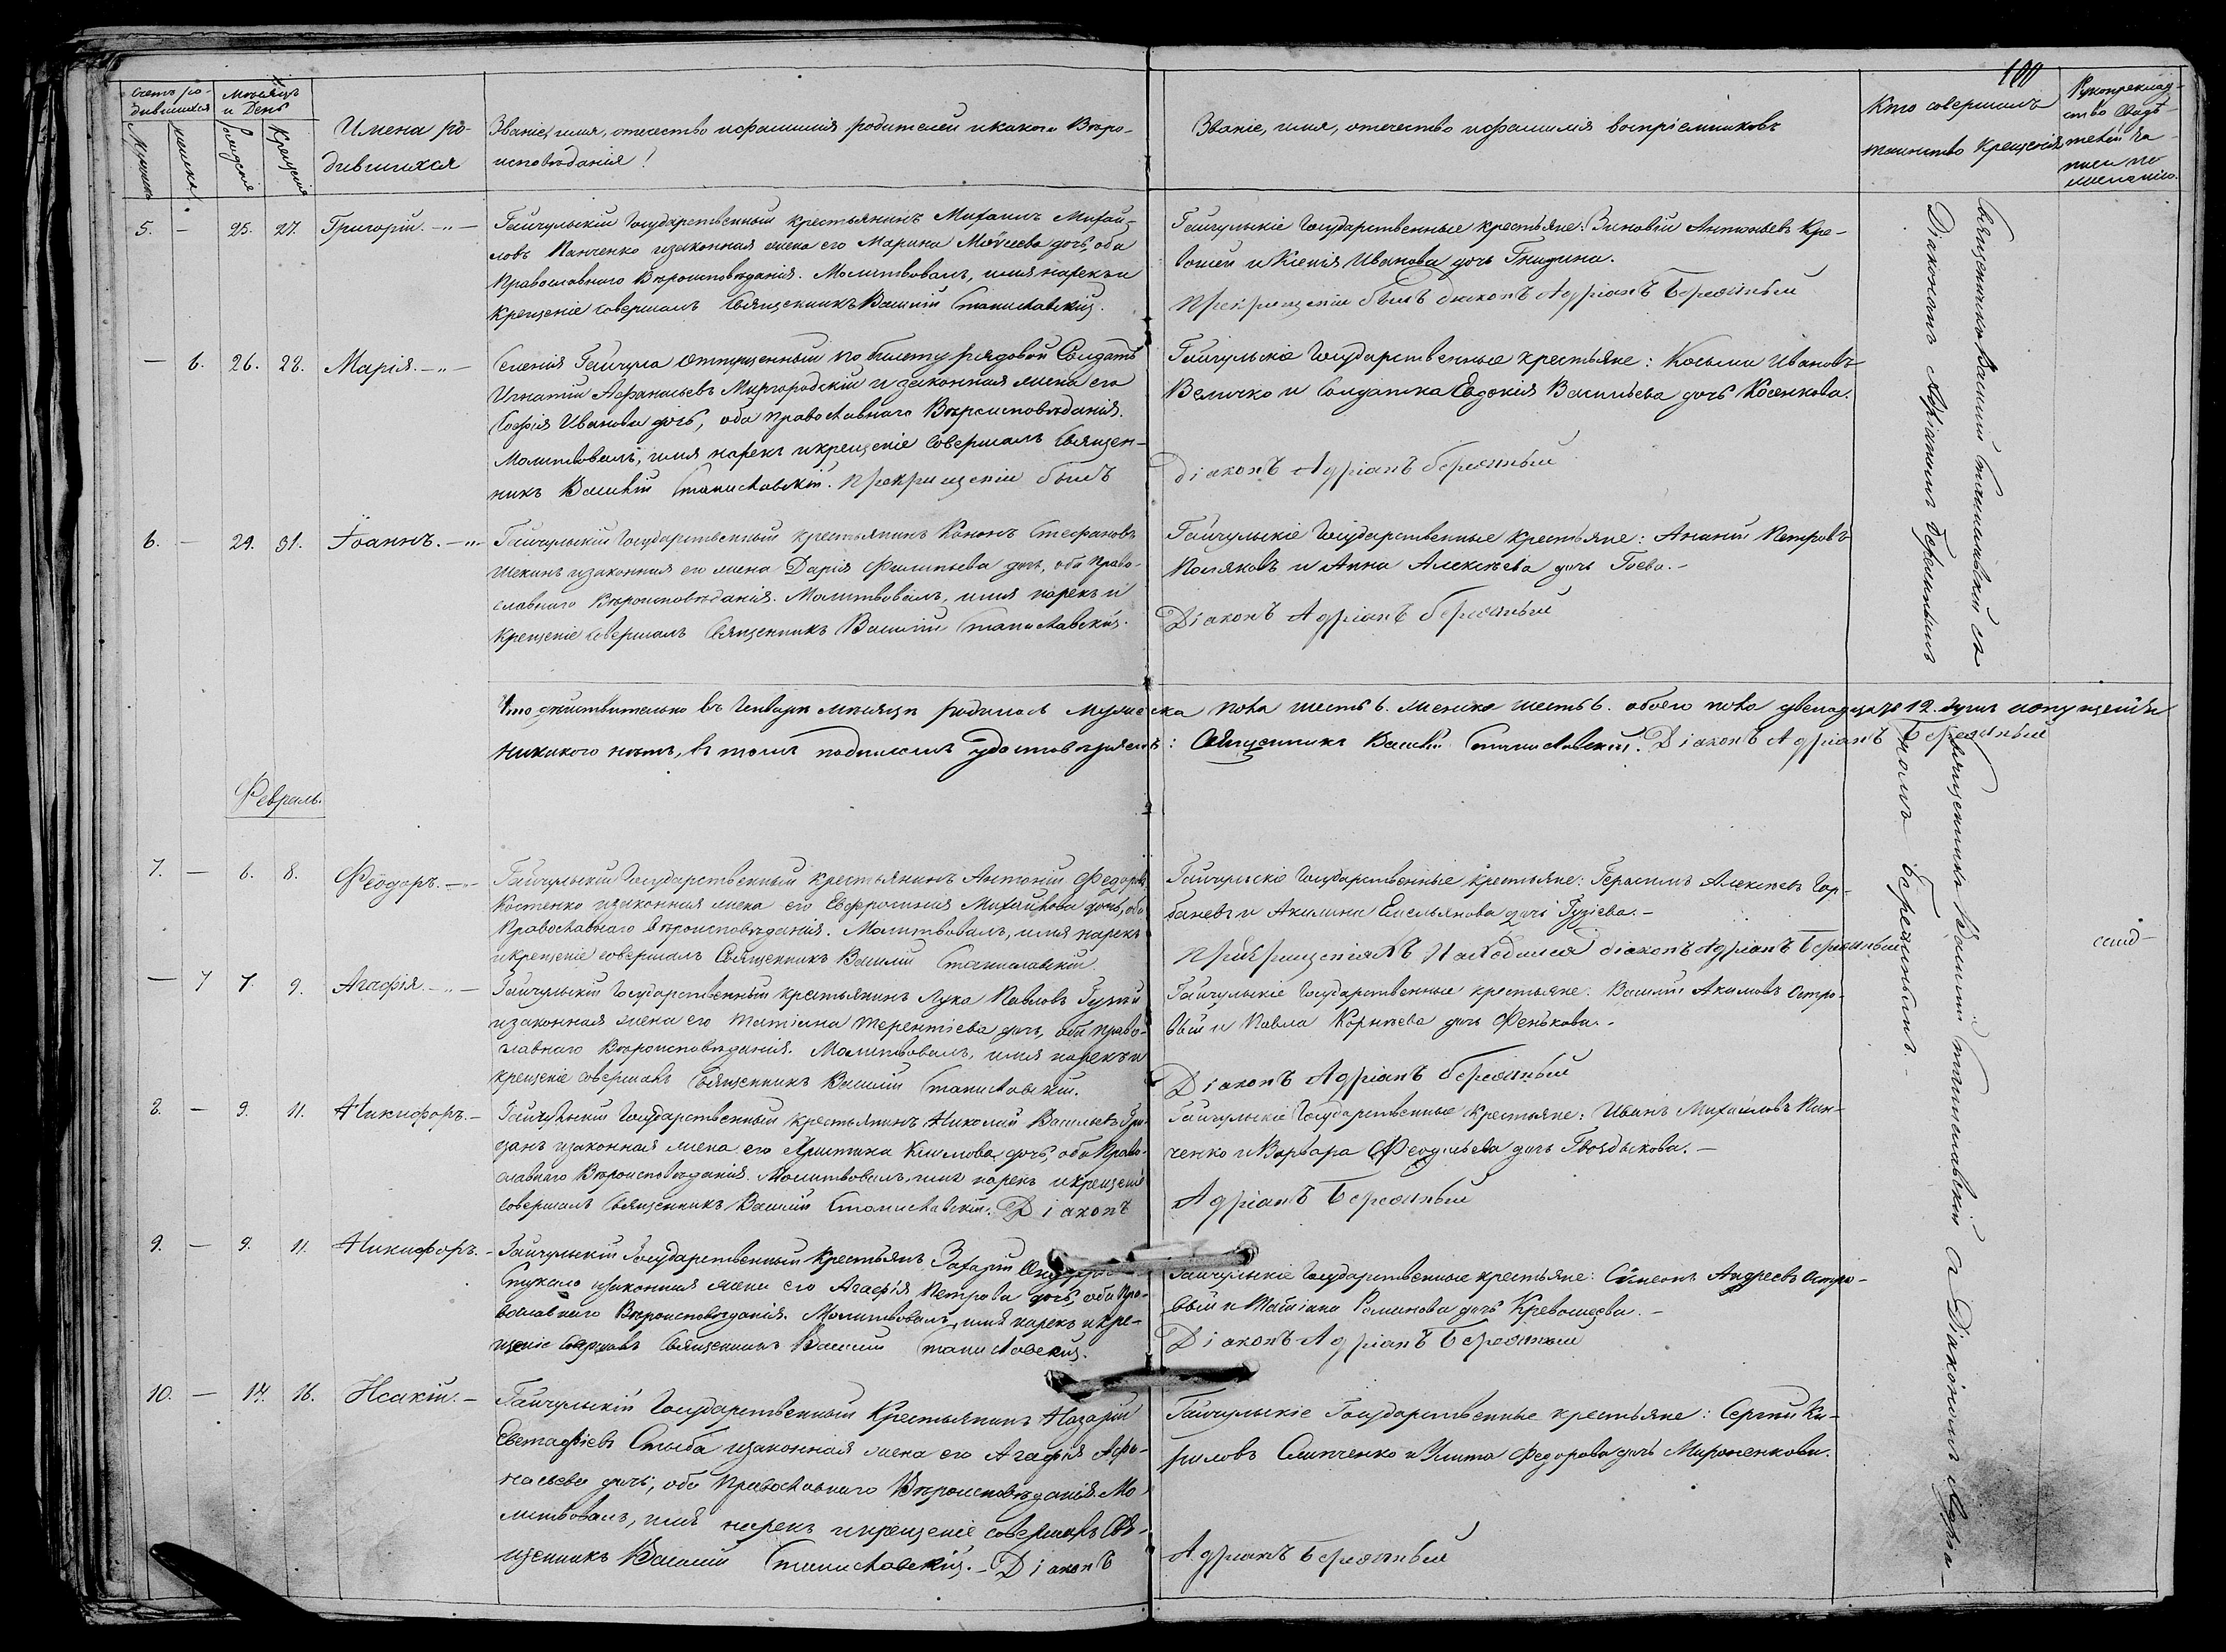 100
Счетъ ро-
дившихся
Мѣсяцъ
и День
Рожденія
Крещенія
Имена ро-
дившихся
Званіе, имя, отечество и фамилія родителей и какого Вѣро-
исповѣданія!
Званіе, имя, отечество и фамилія воспріемниковъ
Кто совершалъ
таинство Крещенія
Рукоприклад-
ство Свидѣ-
телей за-
писи по
желанію.
5. — 25. 27. Григорій.
Гайчульскій Государственный крестьянинъ Михаилъ Михай-
ловъ Панченко и законная жена его Марина Моѵсеева дочь, оба
Православнаго Вѣроисповѣданія. Молитвовалъ, имя нарекъ и
крещеніе совершалъ Священникъ Василій Станиславскій.
Гайчульскіе Государственные крестьяне: Зиновій Антоньевъ Кре-
вошей и Ксенія Иванова дочь Гнидина.
При крещеніи былъ діаконъ Адріанъ Бережный
— 6. 26. 28. Марія.
Селенія Гайчула отпущенный по билету рядовой Солдатъ
Игнатій Афанасьевъ Миргородскій и законная жена его
Софія Иванова дочь, оба православнаго Вѣроисповѣданія.
Молитвовалъ, имя нарекъ и крещеніе совершалъ Священ-
никъ Василій Станиславскій. При крищеніи былъ
Гайчульскіе Государственные крестьяне: Косьма Ивановъ
Величко и Солдатка Евдокія Васильева дочь Косенкова.
діаконъ Адріанъ Бережный
6. — 29. 31. Іоаннъ.
Гайчульскій Государственный крестьянинъ Кононъ Стефановъ
Шекинъ и законная его жена Дарія Филипьева дочь, оба Право-
славнаго Вѣроисповѣданія. Молитвовалъ, имя нарекъ и
крещеніе совершалъ Священникъ Василій Станиславскій.
Гайчульскіе Государственные крестьяне: Ананій Петровъ
Поляковъ и Анна Алексѣева дочь Гоева.
Діаконъ Адріанъ Бережный
Священникъ Василій Станиславскій съ
Діакономъ Адріаномъ Бережнымъ
Что дѣйствительно въ Генварѣ мѣсяцѣ родилось мужеска пола шесть 6. женска шесть 6. обоего пола двенадцать 12. душъ и опущенія
никакого нѣтъ, въ томъ подписомъ удостовѣряемъ: Священникъ Василій Станиславскій. Діаконъ Адріанъ Бережный
Февраль.
7. — 6. 8. Феодоръ.
Гайчульскій Государственный крестьянинъ Антоній Федоровъ
Костенко и законная жена его Евфросинія Михайлова дочь, оба
Православнаго Вѣроисповѣданія. Молитвовалъ, имя нарекъ
и крещеніе совершалъ Священникъ Василій Станиславскій
Гайчульскіе Государственные крестьяне: Герасимъ Алексѣевъ Гор-
баневъ и Акилина Емельянова дочь Гузіева.
При крищеніяхъ находился діаконъ Адріанъ Бережный
— 7 7. 9. Агафія.
Гайчульскій Государственный крестьянинъ Лука Павловъ Гузій
и законная жена его Татіана Терентіева дочь, оба право-
славнаго Вѣроисповѣданія. Молитвовалъ, имя нарекъ и
крещеніе совершалъ Священникъ Василій Станиславскій.
Гайчульскіе Государственные крестьяне: Василій Акимовъ Остро-
вый и Павла Корнѣева дочь Фенькова.
Діаконъ Адріанъ Бережный
8. — 9. 11. Никифоръ.
Гайчульскій Государственный крестьянинъ Николай Васильевъ Гри-
цанъ и законная жена его Христина Климова дочь, оба Право-
славнаго Вѣроисповѣданія. Молитвовалъ, имя нарекъ и крещеніе
совершалъ Священникъ Василій Станиславскій. Діаконъ
Гайчульскіе Государственные крестьяне: Иванъ Михайловъ Пан-
ченко и Варвара дочь Гвоздыкова.
Адріанъ Бережный
9. — 9. 11. Никифоръ.
Гайчульскій Государственный крестьянъ Захарій
Стукало и законная жена его Агафія Петрова дочь, оба Пра-
вославнаго Вѣроисповѣданія. Молитвовалъ, имя нарекъ и кре-
щеніе совершалъ Священникъ Василій Станиславскій.
Гайчульскіе Государственные крестьяне: Симеонъ Андреевъ Остро-
вый и Татіана Романова дочь Кревошеева.
Діаконъ Адріанъ Бережный
10. — 14. 16. Исакій.
Гайчульскій Государственный Крестьянинъ Назарій
Евстафіевъ Стыба и законная жена его Агафія Афа-
насьева дочь, оба Православнаго Вѣроисповѣданія. Мо-
литвовалъ, имя нарекъ и крещеніе совершалъ Свя-
щенникъ Василій Станиславскій. Діаконъ
Гайчульскіе Государственные крестьяне: Сергѣй Ки-
риловъ Слипченко и Улита Федорова дочь Мироненкова.
Адріанъ Бережный
Священникъ Василій Станиславскій съ Діакономъ Адріа-
номъ Бережнымъ.